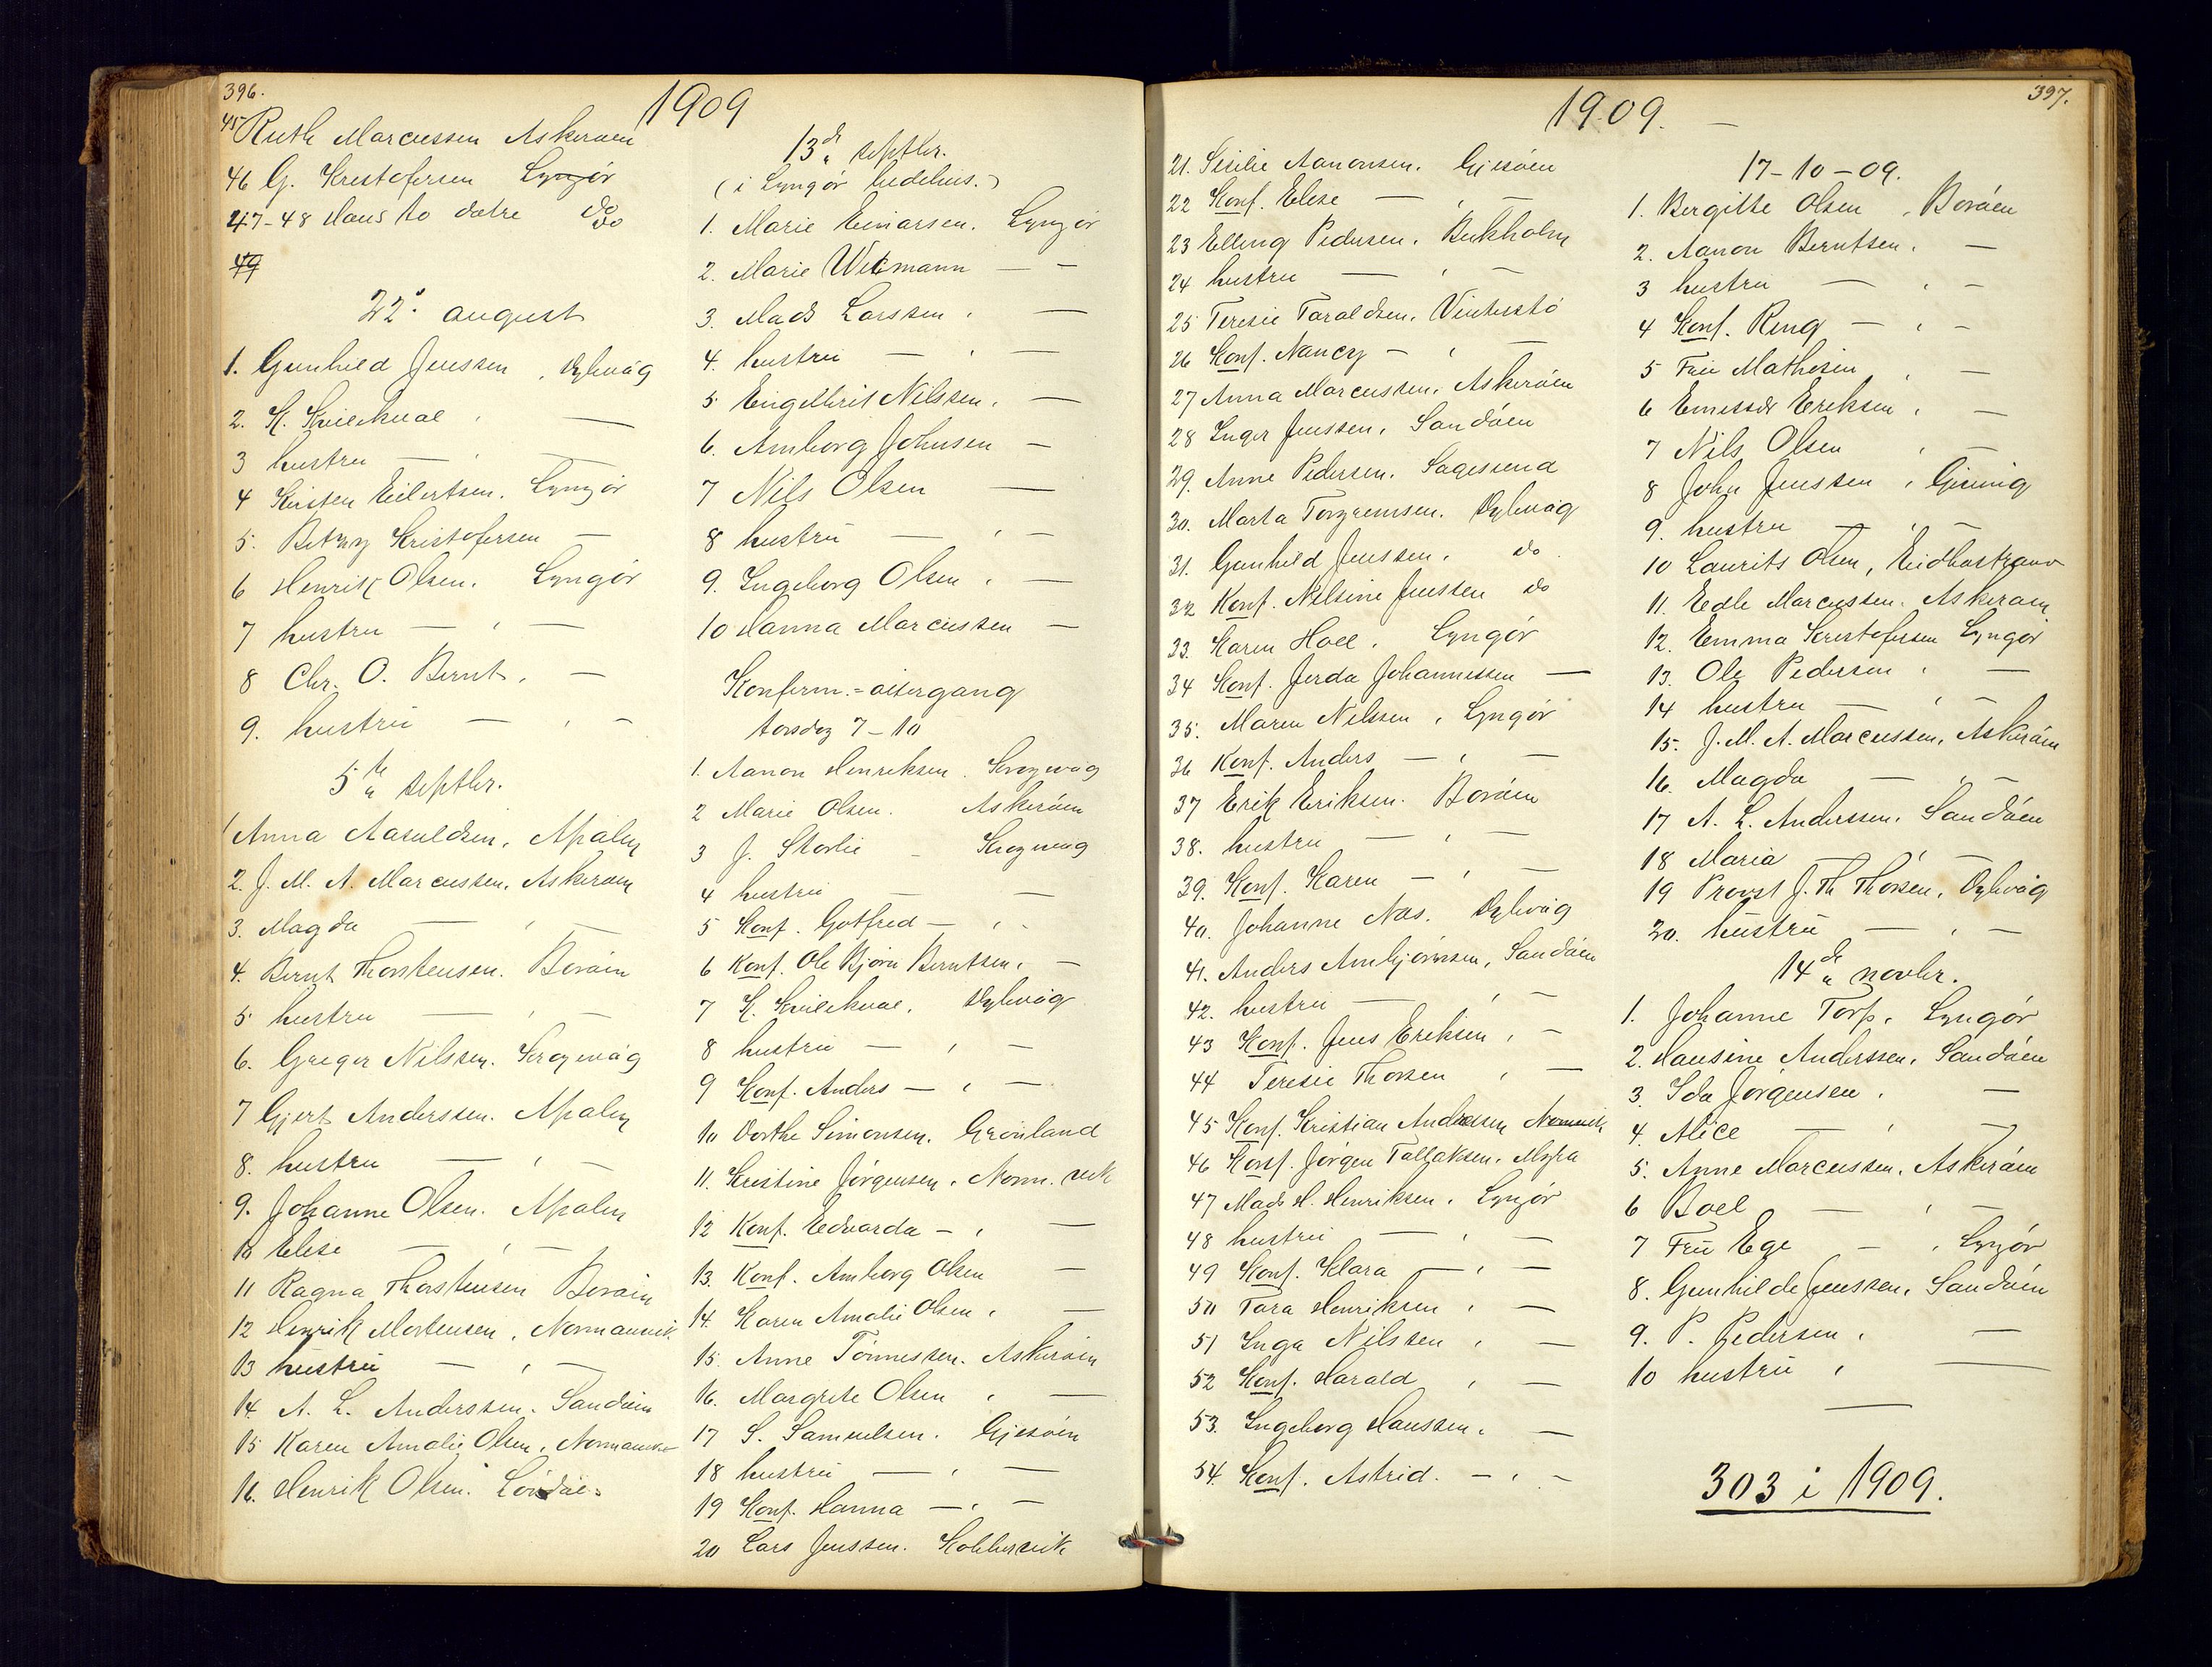 396.
1909
45 Ruth Marcussen Askerøen
46 G. Kristofersen Lyngør
47-48 Hans to døtre do do
49
22de august
1. Gunhild Jenssen, Dybvåg
2. K. Kvilekval, —
3 hustru — , —
4 Kirsten Eilertsen. Lyngør
5. Betzy Kristofersen —
6 Henrik Olsen. Lyngør
7 hustru — , —
8 Chr. O. Bernt, —
9. hustru — , —
5te septbr.
1 Anna Aasuldsen, Apalvy
2. J. M. A. Marcussen, Askerøen
3. Magda — , —
4. Bernt Thorstensen. Borøen
5 hustru — , —
6. Greger Nilssen. Krogevåg
7 Gjert Anderssen. Apalvy
8. hustru — , —
9. Johanne Olsen. Apalvy
10 Elise — , —
11 Ragna Thorstensen Borøen
12 Henrik Mortensen, Normannvik
13 hustru — , —
14. A. L. Anderssen. Sandøen
15 Karen Amalie Olsen, Normannvik
16. Henrik Olsen.
13de septbr.
(i Lyngør bedehus.)
1. Marie Einarsen. Lyngør
2. Marie Witmann — —
3. Mads Larssen, —
4. hustru — , —
5 Engelbrit Nilssen, —
6. Amborg Johnsen —
7 Nils Olsen —
8 hustru — , —
9. Ingeborg Olsen, —
10 Hanna Marcussen —
Konferm.=altergang
torsdag 7-10
1. Aanon Henriksen. Krogevåg
2 Marie Olsen. Askerøen
3 J. Storlie - Krogevåg
4 hustru — —
5 Konf. Gotfred — , -
6 Konf. Ole Bjørn Berntsen, —
7 K. Kvilekval, Dybvåg
8 hustru — , —
9 Konf. Anders — , —
10 Dorthe Simonsen. Grønland
11. Kristine Jørgensen, Norm. vik
12 Konf. Edvarda — , —
13. Konf. Amborg Olsen —
14. Karen Amalie Olsen, —
15. Anne Tønnessen. Askerøen
16. Margrete Olsen , —
17 S. Samuelsen. Gjesøen
18 hustru — , —
19 Konf. Hanna — , —
20 Lars Jenssen. Kobbervik
1909. —
397.
21. Sesilie Aanonsen. Gjesøen
22 Konf. Elise — , —
23 Elling Pedersen. Bukholm
24 hustru — , —
25 Teresie Taraldsen. Vinterstø
26 Konf. Nancy — , —
27 Anna Marcussen. Askerøen
28 Inger Jenssen, Sandøen
29. Anne Pedersen. Sagesund
30. Marta Torgrimsen. Dybvåg
31. Gunhild Jenssen. do.
32 Konf. Nilsine Jenssen do
33. Karen Holl. Lyngør
34 Konf. Jerda Johannessen —
35. Maren Nilssen, Lyngør
36 Konf. Anders — , —
37 Erik Eriksen. Borøen
38. hustru — , —
39. Konf. Karen — , —
40. Johanne Næs. Dybvåg
41. Anders Ambjørnsen, Sandøen
42. hustru — , —
43 Konf. Jens Eriksen, —
44 Teresie Thorsen , —
45 Konf. Kristian Andressen Normannvik
46 Konf. Jørgen Tallaksen. Myra
47 Mads H. Henriksen. Lyngør
48 hustru — , —
49 Konf. Klara — , —
50 Tora Henriksen , —
51 Inga Nilssen , —
52 Konf. Harald , —
53. Ingeborg Hanssen, —
54. Konf. Astrid. — , —
17-10-09.
1. Bergitte Olsen, Borøen
2. Aanon Berntsen. —
3 hustru — , —
4 Konf. Ring — , —
5 Frue Mathesin , —
6 Enessdr Eriksen, —
7 Nils Olsen , —
8 John Jenssen, Gjeving
9. hustru — , —
10 Laurits Olsen, Eidbostrand
11. Edle Marcussen. Askerøen
12. Emma Kristofersen Lyngør
13. Ole Pedersen , —
14 hustru — , —
15. J. M. A. Marcussen, Askerøen
16. Magda — , —
17 A. L. Anderssen. Sandøen
18 Maria — , —
19 Provst J. Th Thorsen, Dybvåg
20. hustru — , —
14de novbr.
1. Johanne Torp, Lyngør
2. Hansine Anderssen, Sandøen
3. Ida Jørgensen, —
4. Alice — , —
5. Anne Marcussen, Askerøen
6 Boel — , —
7 Fru Ege — , Lyngør
8. Gunhilde Jenssen, Sandøen
9. P. Pedersen, —
10 hustru , —
303 i 1909.